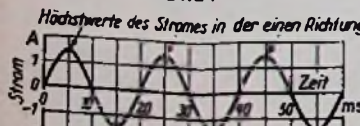 Höchstwerte des Stromes in der einen Richtung
A
Strom
1
0
-1
0
10
20
30
40
50
Zeit
ms